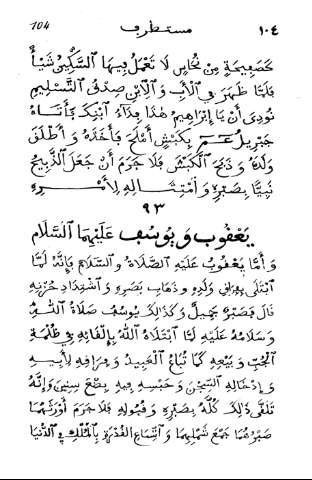 104 مستطرف ١٠٤
كصفيحة من نحاس لا تعمل فيها السكين شيأ
فلمّا ظهر في الأب والابن صدق التسليم
نودي أن يا إبراهيم هذا فداء ابنك فأتاه
جبريل عم بكبش أملح فأخذه وأطلق
ولده وذبح الكبش فلا جرم أن جعل الذبيح
نبيّا بصبره وامتثاله لأمره
٩٣
يعقوب ويوسف عليهما السلام
وأما يعقوب عليه الصلاة والسلام فإنه لما
ابتلي بفراق ولده وذهاب بصره واشتداد حزنه
قال فصبر جميل وكذلك يوسف صلاة الله
وسلامه عليه لما ابتلاه الله بإلقائه في ظلمة
الجب وبيعه كما تباع العبيد وفراقه لأبيه
وإدخاله السجن وحبسه فيه بضع سنين وإنه
تلقى ذلك كله بصبره وقبوله فلا جرم أورثهما
صبرهما جمع شملهما واتساع القدرة بالملك في الدنيا